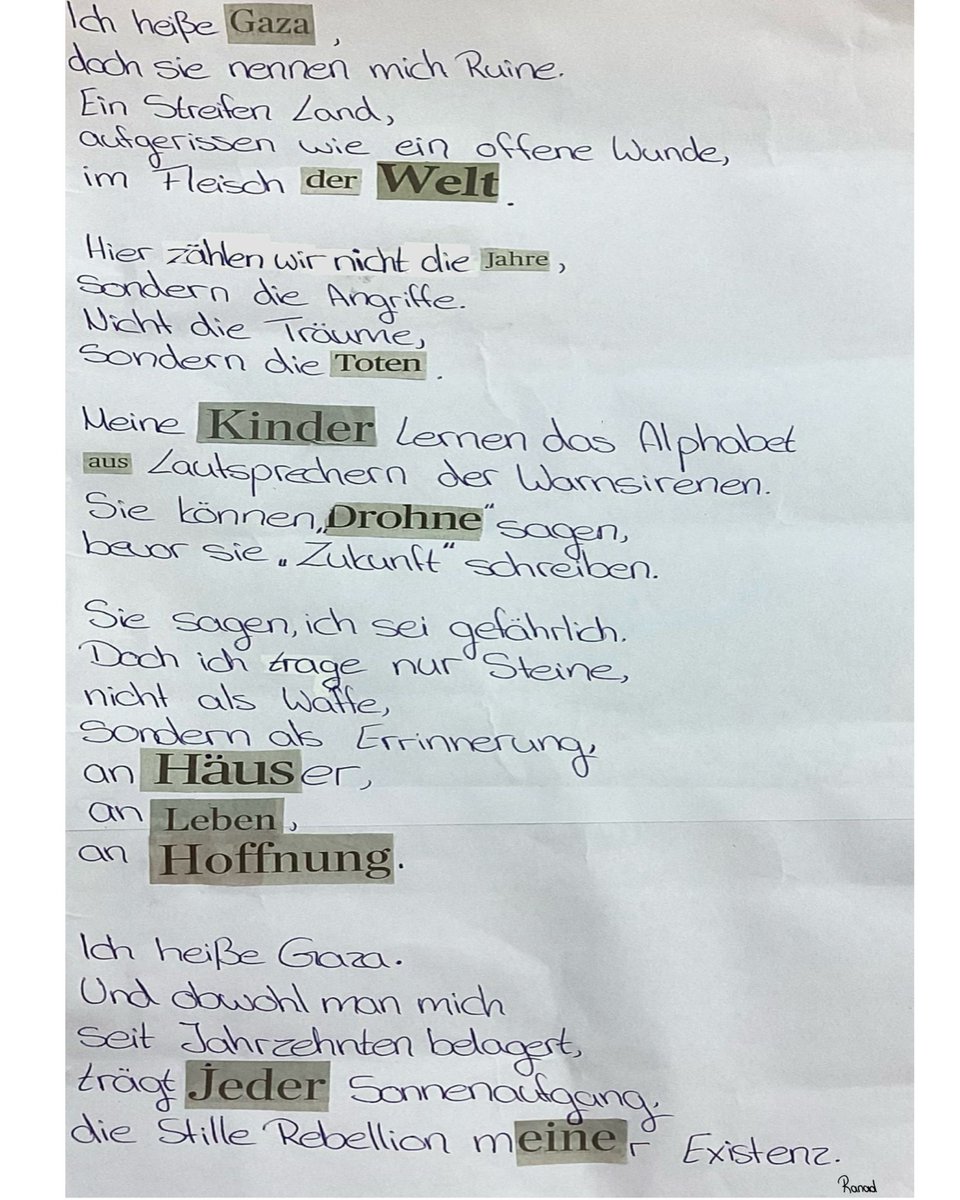 Ich heiße Gaza,
doch sie nennen mich Ruine.
Ein Streifen Land,
aufgerissen wie ein offene Wunde,
im Fleisch der Welt.
Hier zählen wir nicht die Jahre,
Sondern die Angriffe.
Nicht die Träume,
Sondern die Toten.
Meine Kinder lernen das Alphabet
aus Lautsprechern der Warnsirenen.
Sie können „Drohne“ sagen,
bevor sie „Zukunft“ schreiben.
Sie sagen, ich sei gefährlich.
Doch ich trage nur Steine,
nicht als Waffe,
Sondern als Errinnerung,
an Häuser,
an Leben,
an Hoffnung.
Ich heiße Gaza.
Und obwohl man mich
seit Jahrzehnten belagert,
trägt jeder Sonnenaufgang,
die Stille Rebellion meiner Existenz.
Ranad